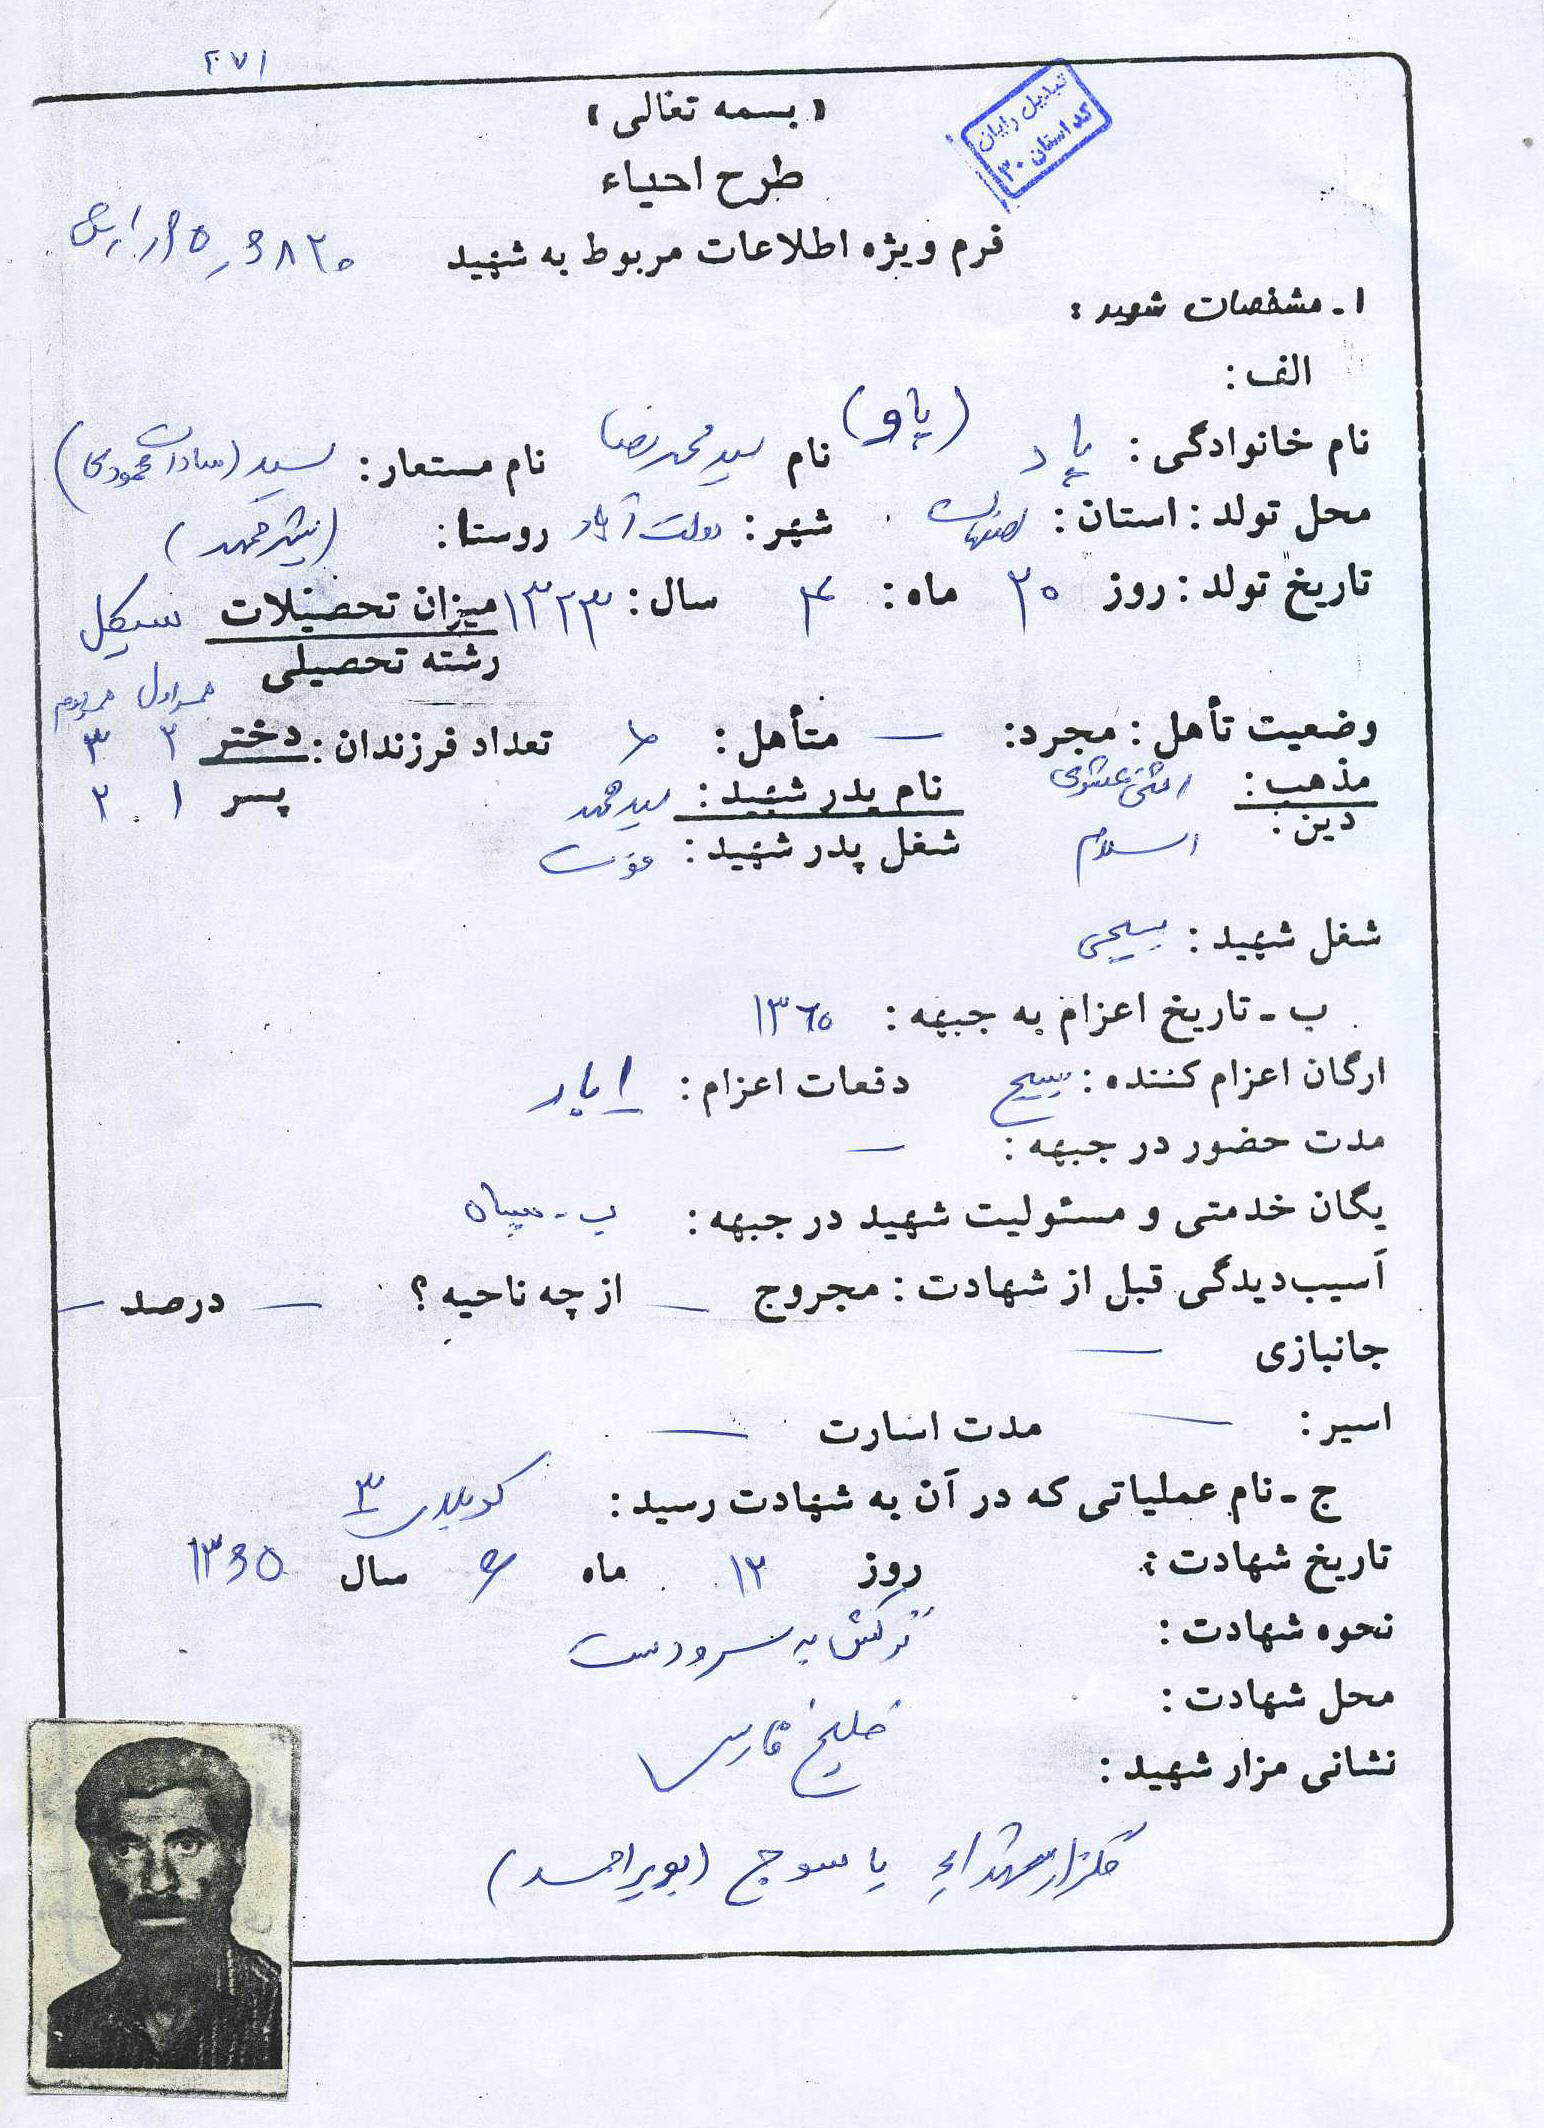 ۲۷۱
تبدیل رایان
کد استان ۳۰
«بسمه تعالی»
طرح احیاء
فرم ویژه اطلاعات مربوط به شهید
۱ـ مشخصات شهید :
الف :
نام خانوادگی : پاد (پاو) نام سید محمدرضا نام مستعار : سید (سادات محمودی)
محل تولد : استان : اصفهان شهر : دولت آباد روستا :
تاریخ تولد : روز ۲۰ ماه : ۴ سال : ۱۳۲۳ میزان تحصیلات سیکل
رشته تحصیلی
همسر اول همسر دوم
وضعیت تأهل : مجرد : — متأهل : تعداد فرزندان : دختر ۲ ۳
مذهب : اثنی عشری نام پدر شهید : سید محمد پسر ۱ ۲
دین : اسلام شغل پدر شهید : فوت
شغل شهید : بسیجی
ب ـ تاریخ اعزام به جبهه : ۱۳۶۵
ارگان اعزام کننده : بسیج دفعات اعزام : ۱ بار
مدت حضور در جبهه : —
یگان خدمتی و مسئولیت شهید در جبهه : ب - سپاه
آسیب‌دیدگی قبل از شهادت : مجروح — از چه ناحیه ؟ — درصد —
جانبازی —
اسیر : — مدت اسارت —
ج ـ نام عملیاتی که در آن به شهادت رسید : کربلای ۳
تاریخ شهادت : روز ۱۲ ماه ۶ سال ۱۳۶۵
نحوه شهادت : ترکش به سر و دست
محل شهادت : خلیج فارس
نشانی مزار شهید :
گلزار شهدای یاسوج (بویراحمد)